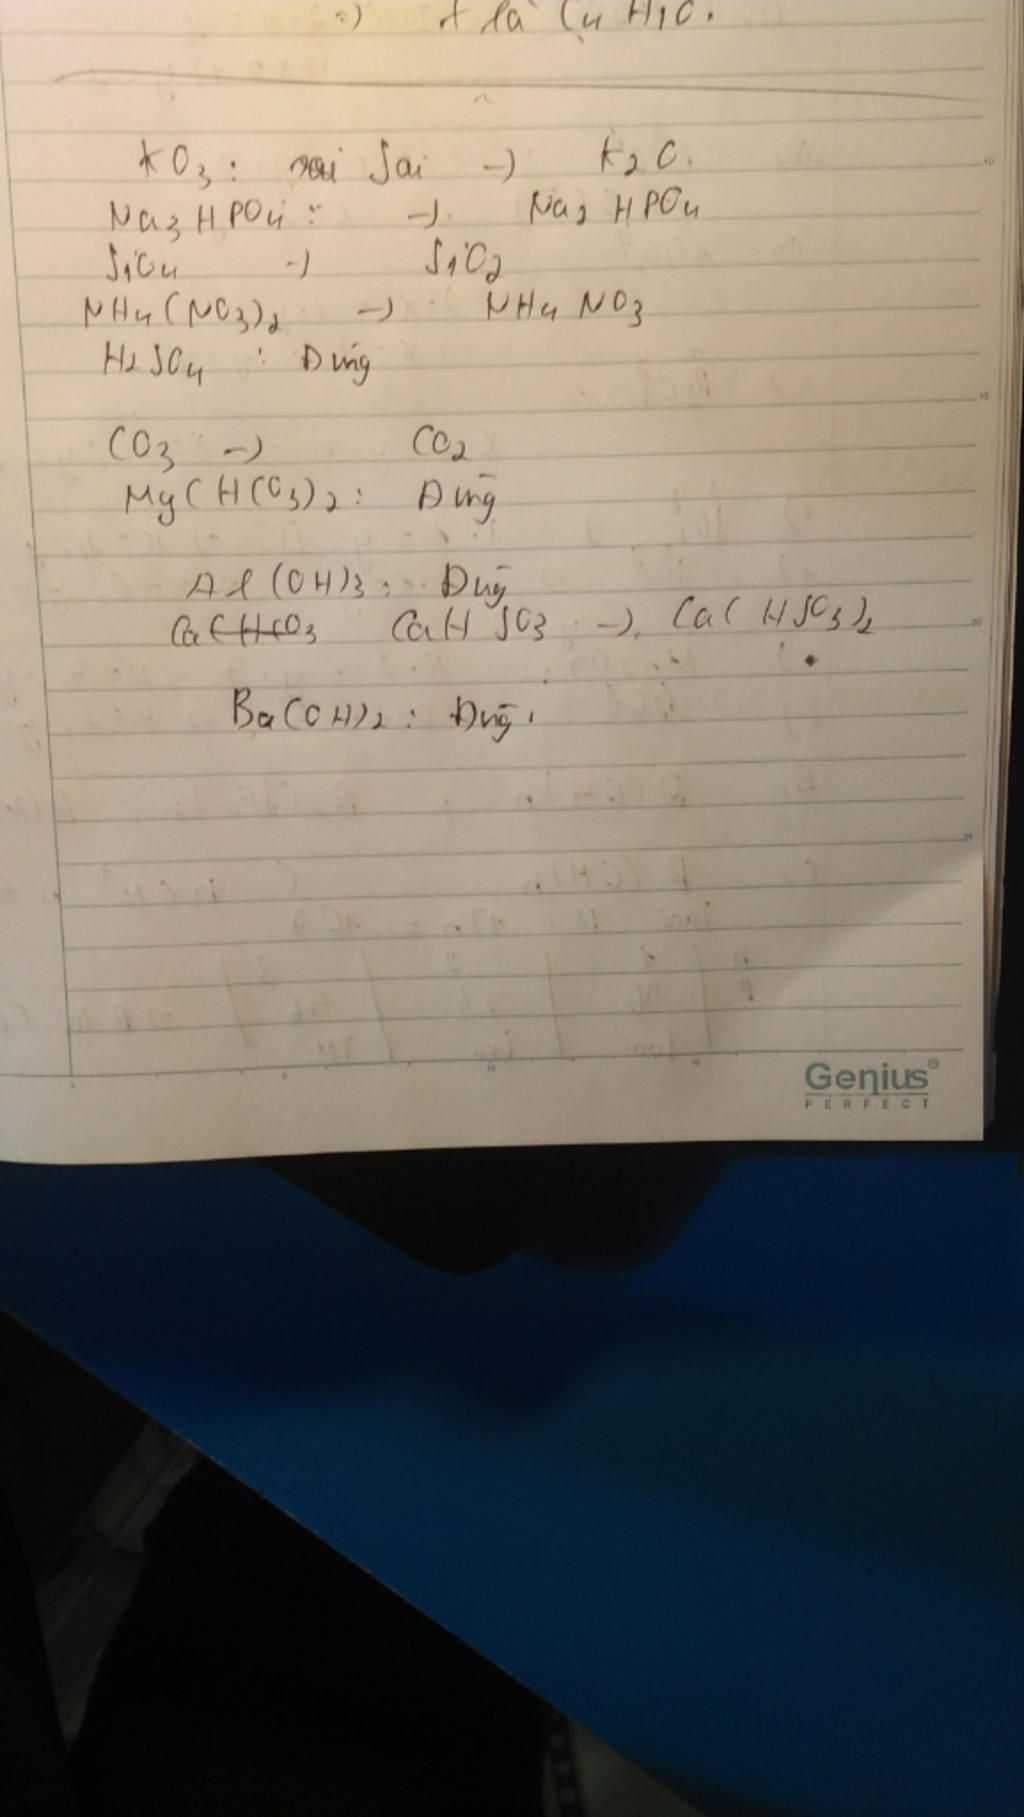 =) A là C4H10.
KO3: Sai -> K2O.
Na3HPO4: -> Na2HPO4
SiO4 -> SiO2
NH4(NO3)2 -> NH4NO3
H2SO4 : Đúng
CO3 -> CO2
Mg(HCO3)2: Đúng
Al(OH)3: Đúng
CaHSO3 -> Ca(HSO3)2
Ba(OH)2: Đúng.
Genius
PERFECT